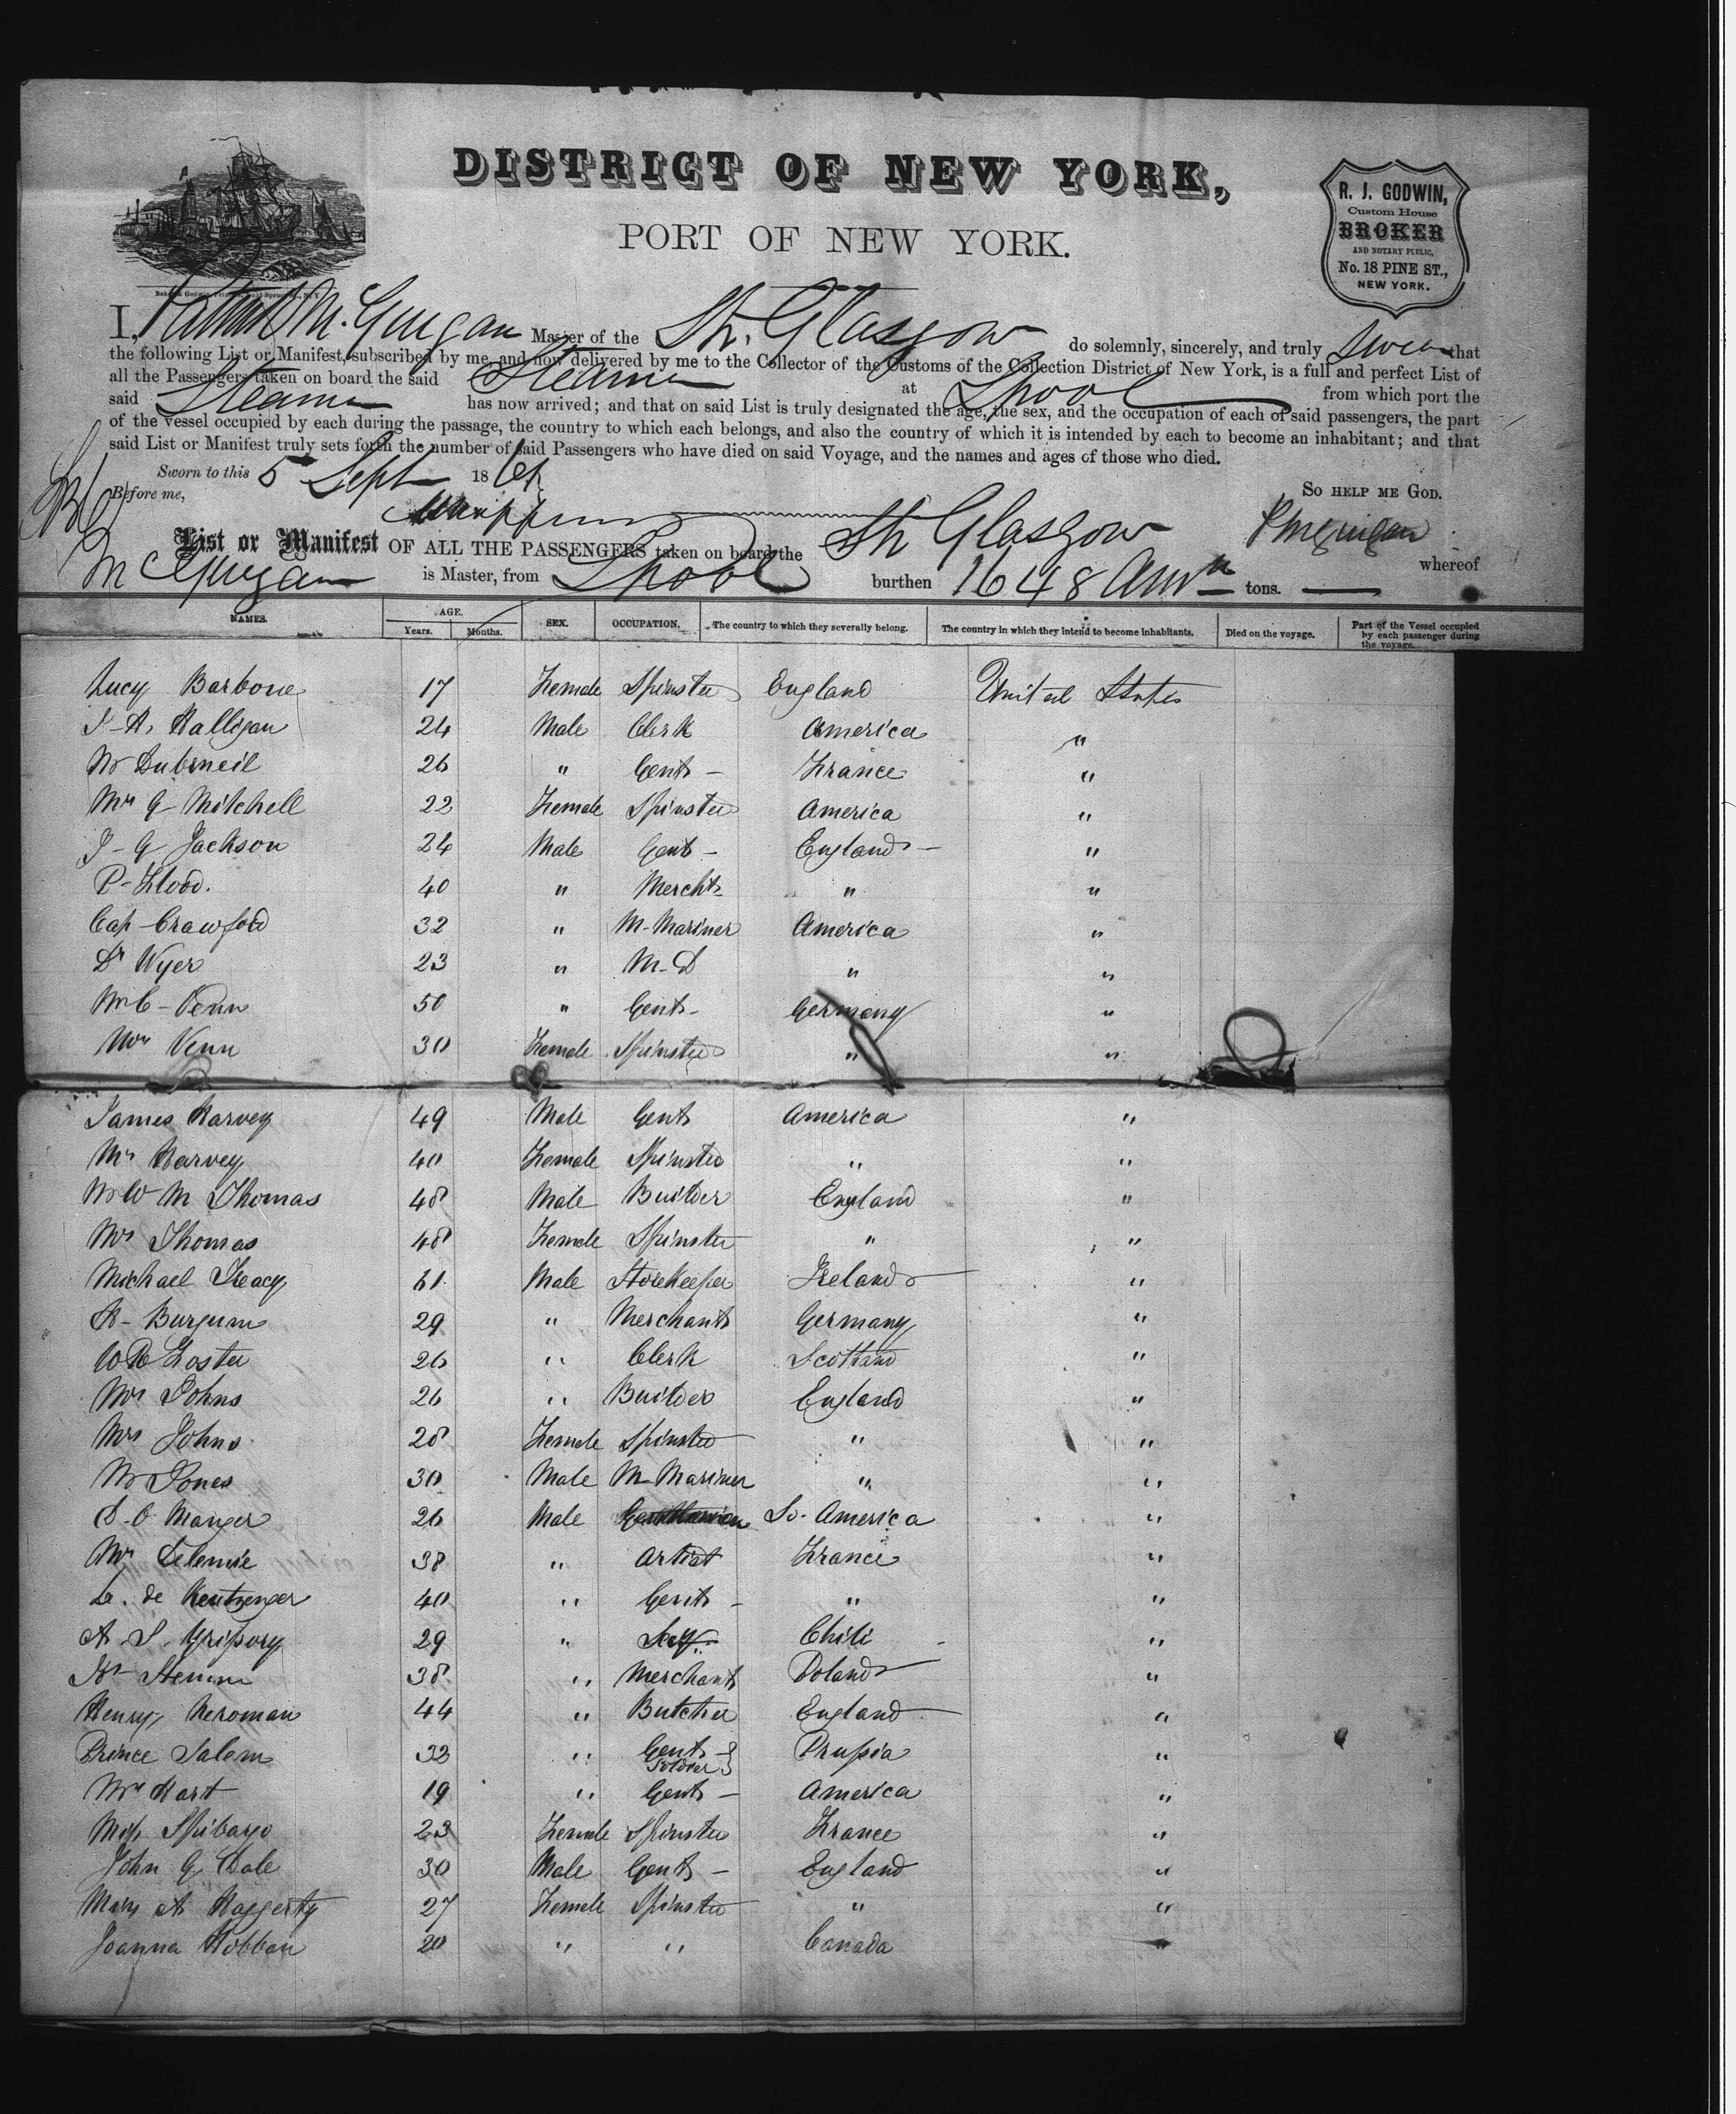 DISTRICT OF NEW YORK,
PORT OF NEW YORK.
R. J. GODWIN,
Custom House
BROKER
AND NOTARY PUBLIC,
No. 18 PINE ST.,
NEW YORK.
I, M. Guigan Master of the Str. Glasgow do solemnly, sincerely, and truly swear that
the following List or Manifest, subscribed by me, and now delivered by me to the Collector of the Customs of the Collection District of New York, is a full and perfect List of
all the Passengers taken on board the said Steamer at Lpool from which port the
said Steamer has now arrived; and that on said List is truly designated the age, the sex, and the occupation of each of said passengers, the part
of the vessel occupied by each during the passage, the country to which each belongs, and also the country of which it is intended by each to become an inhabitant; and that
said List or Manifest truly sets forth the number of said Passengers who have died on said Voyage, and the names and ages of those who died.
Sworn to this 5 Sept 1861.
So HELP ME GOD.
Before me,
List or Manifest OF ALL THE PASSENGERS taken on board the Str Glasgow whereof
McGuigan is Master, from Lpool burthen 1648 tons.
NAMES. AGE. Years. Months. SEX. OCCUPATION. The country to which they severally belong. The country in which they intend to become inhabitants. Died on the voyage. Part of the Vessel occupied by each passenger during the voyage.
Lucy Barbone 17 Female Spinster England United States
J-A, Halligan 24 Male Clerk America "
Mr Dubrueil 26 " Gent - France "
Mrs G- Mitchell 22 Female Spinster America "
J- G Jackson 24 Male Gent - England - "
P- Flood. 40 " Mercht " "
Cap - Crawford 32 " M- Mariner America "
Dr Wyer 23 " M-D " "
Mr C- Venn 50 " Gent - Germany "
Mrs Venn 30 Female Spinster " "
James Harvey 49 Male Gent America "
Mrs Harvey 40 Female Spinster " "
Mr W M Thomas 48 Male Builder England "
Mrs Thomas 48 Female Spinster " "
Michael Treacy 61 Male Storekeeper Ireland "
A- Burgum 29 " Merchant Germany "
W R Foster 26 " Clerk Scotland "
Mr Johns 26 " Builder England "
Mrs Johns 28 Female Spinster " "
Mr Jones 30 Male M Mariner " "
D. O Manger 26 Male Gentleman So- America "
Mr Delemie 38 " Artist France "
de 40 " Gent - " "
A. S. Gripory 29 " Chili "
Stemm 38 " Merchant Poland "
Henry Neroman 44 " Butcher England "
Prince Salem 33 " Gent - Soldier } Prussia "
Mr Hart 19 " Gent - America "
Miss Spibayo 23 Female Spinster France "
John G. Dale 30 Male Gent - England "
Mary A Haggerty 27 Female Spinster " "
Joanna Hobban 20 " " Canada "